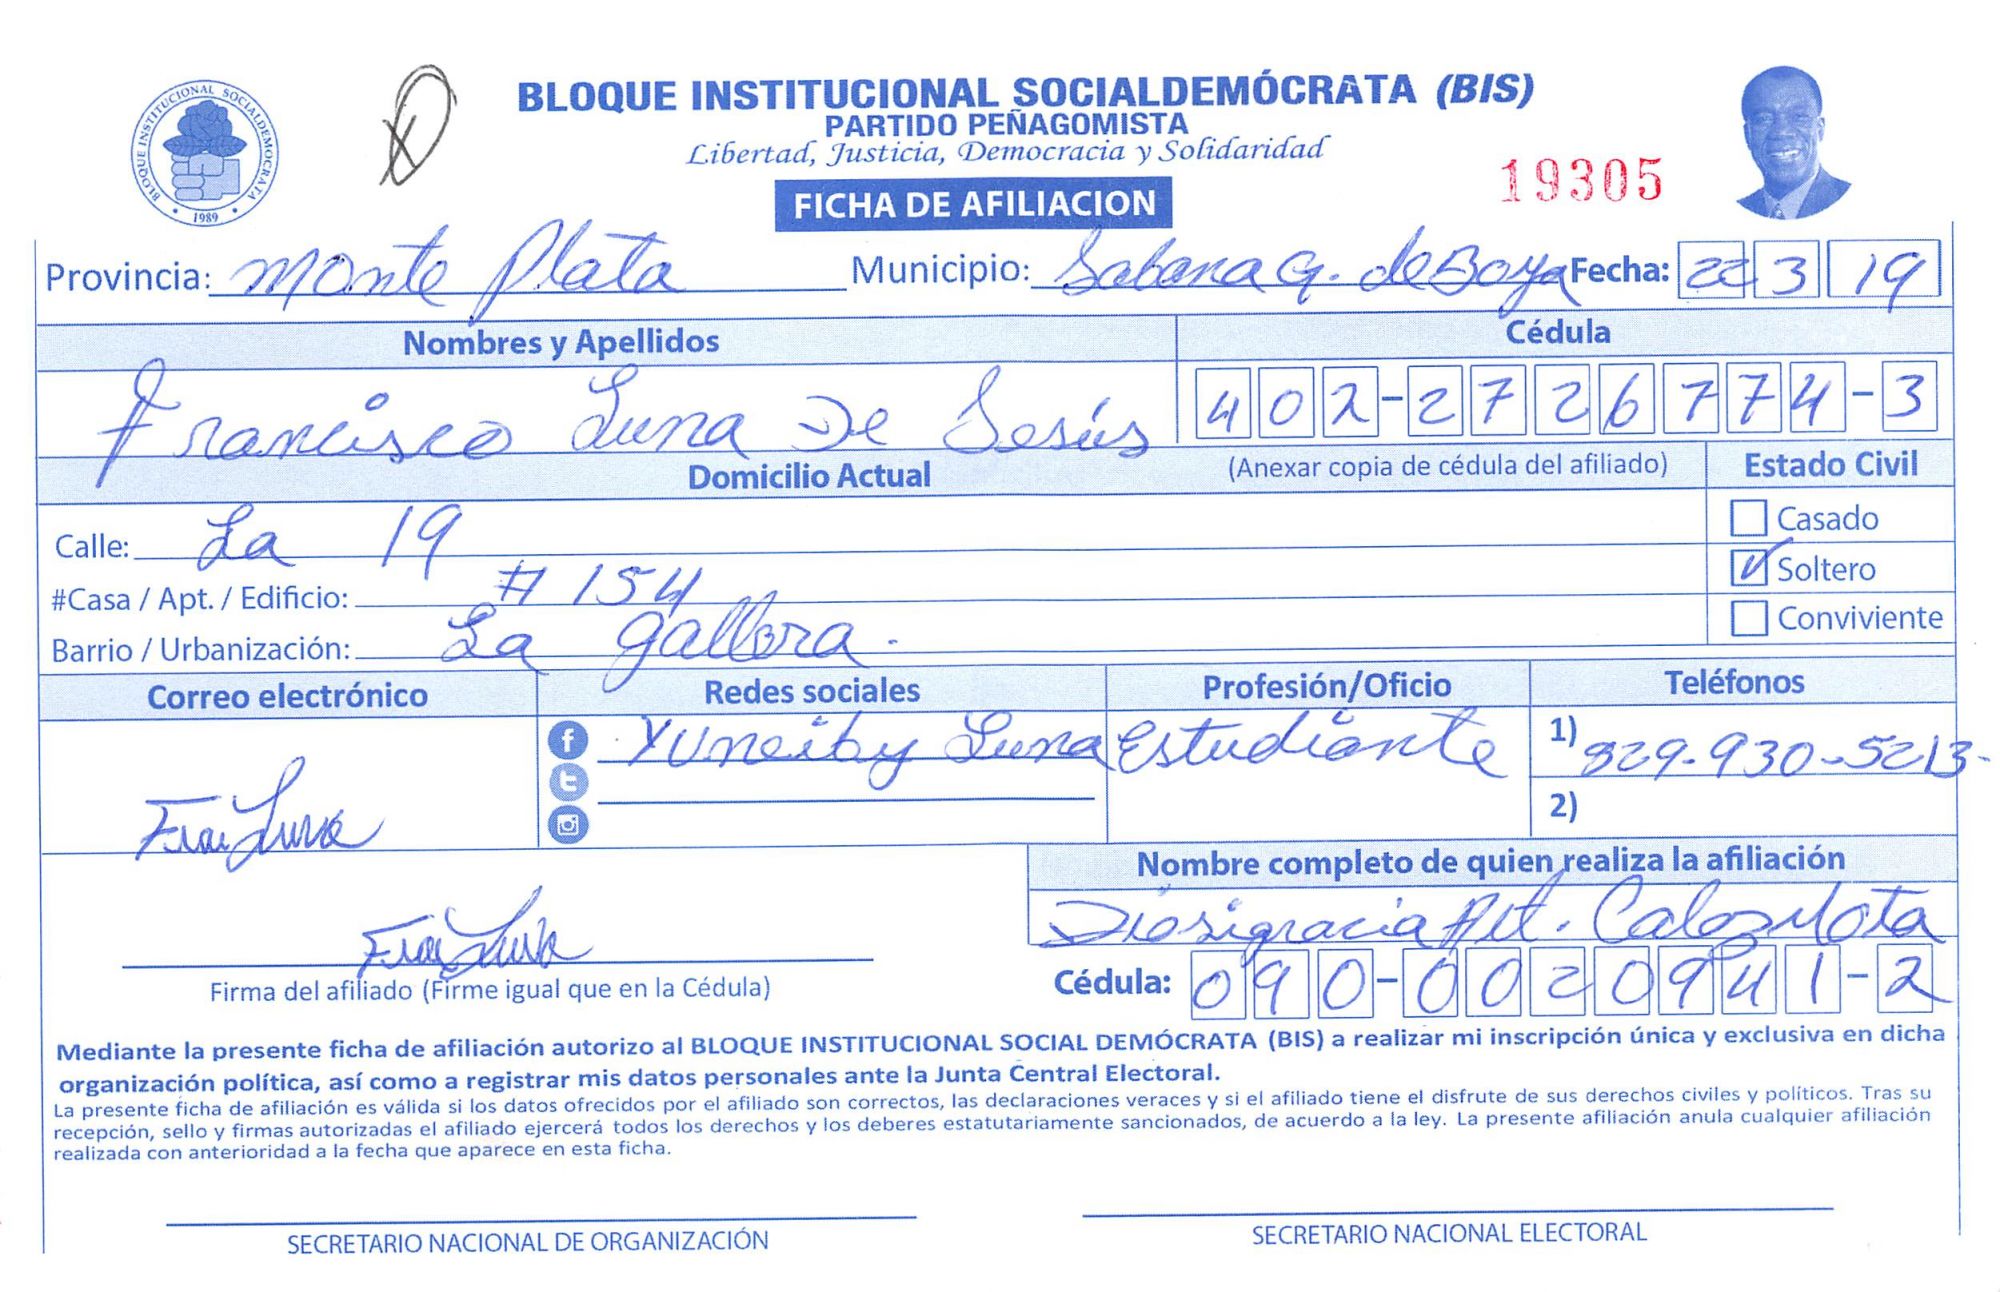 BLOQUE INSTITUCIONAL SOCIALDEMÓCRATA (BIS)
PARTIDO PEÑAGOMISTA
Libertad, Justicia, Democracia y Solidaridad
BLOQUE INSTITUCIONAL SOCIALDEMOCRATA
1989
19305
FICHA DE AFILIACION
Provincia: Monte Plata Municipio: Sabana G. de Boya Fecha: 22 3 19
Nombres y Apellidos Cédula
Francisco Luna De Jesús 402-2726774-3
Domicilio Actual (Anexar copia de cédula del afiliado) Estado Civil
Calle: La 19 Casado
#Casa / Apt. / Edificio: # 154 Soltero
Barrio / Urbanización: La gallera. Conviviente
Correo electrónico Redes sociales Profesión/Oficio Teléfonos
Yuneiby Luna Estudiante 1) 829-930-5213-
2)
Fran Luna
Nombre completo de quien realiza la afiliación
Diosigracia Alt. Mota
Fran Luna
Firma del afiliado (Firme igual que en la Cédula) Cédula: 090-0020941-2
Mediante la presente ficha de afiliación autorizo al BLOQUE INSTITUCIONAL SOCIAL DEMÓCRATA (BIS) a realizar mi inscripción única y exclusiva en dicha
organización política, así como a registrar mis datos personales ante la Junta Central Electoral.
La presente ficha de afiliación es válida si los datos ofrecidos por el afiliado son correctos, las declaraciones veraces y si el afiliado tiene el disfrute de sus derechos civiles y políticos. Tras su
recepción, sello y firmas autorizadas el afiliado ejercerá todos los derechos y los deberes estatutariamente sancionados, de acuerdo a la ley. La presente afiliación anula cualquier afiliación
realizada con anterioridad a la fecha que aparece en esta ficha.
SECRETARIO NACIONAL DE ORGANIZACIÓN SECRETARIO NACIONAL ELECTORAL